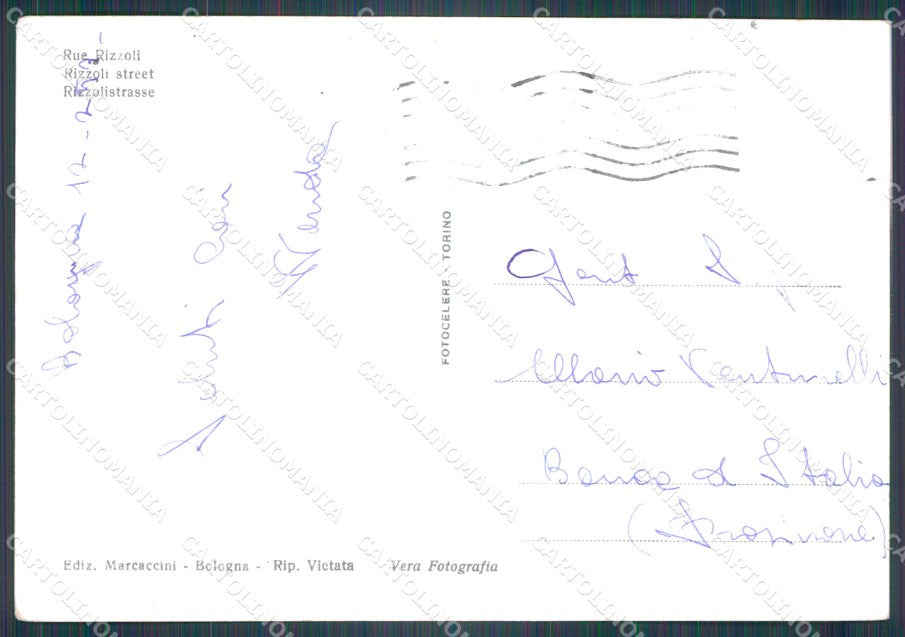 Rue Rizzoli
Rizzoli street
Rizzolistrasse
Bologna 12-2-
Saluti cari
FOTOCELERE - TORINO
Gent
Mario Venturelli
Banca d Italia
(Frosinone)
Ediz. Marcaccini - Bologna - Rip. Vietata Vera Fotografia
CARTOLINOMANIA